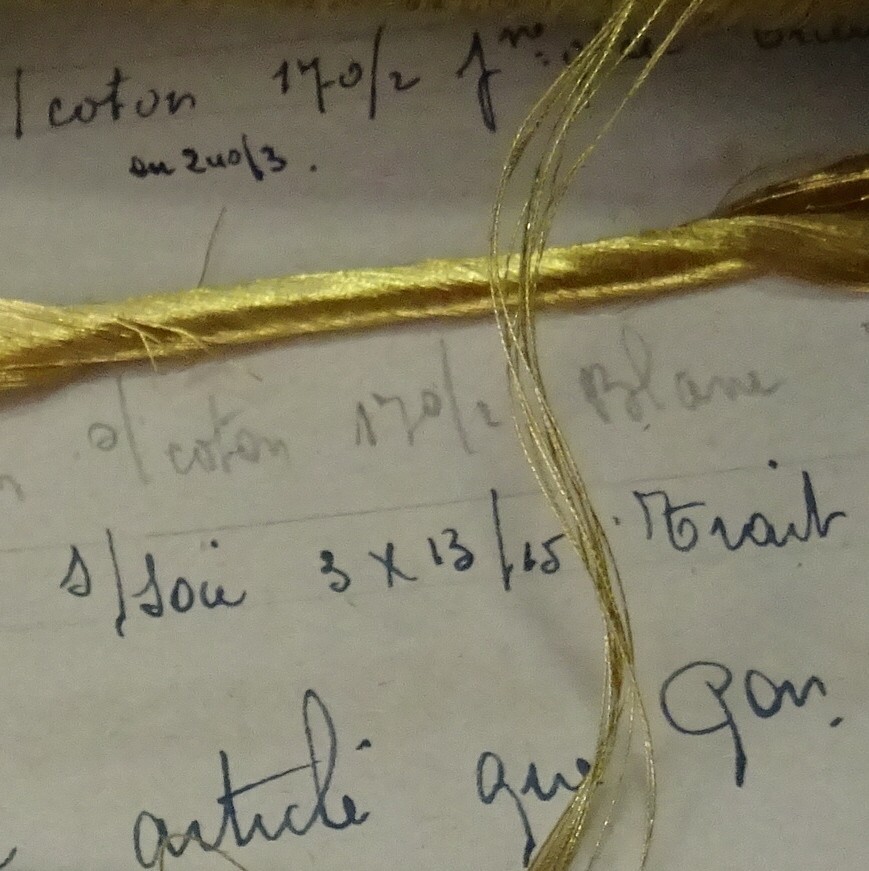 /coton 170/2 jne
ou 240/3.
s/coton 170/2 Blanc
s/soie 3 x 13/15 Trait
article que